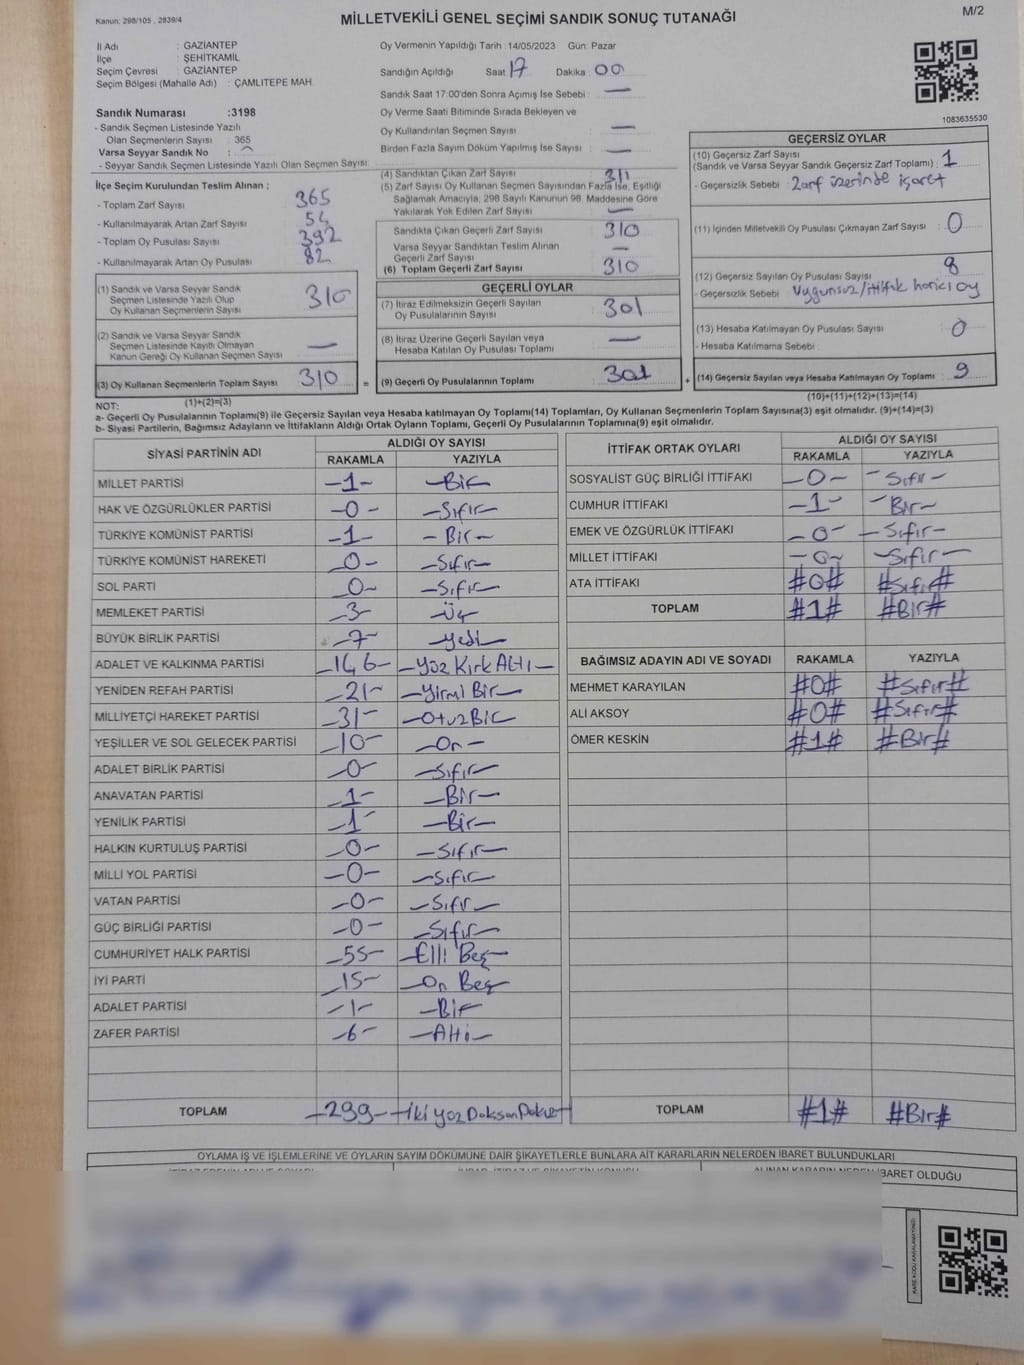 Kanun: 298/105 , 2839/4
MİLLETVEKİLİ GENEL SEÇİMİ SANDIK SONUÇ TUTANAĞI
M/2
İl Adı : GAZİANTEP
İlçe : ŞEHİTKAMİL
Seçim Çevresi : GAZİANTEP
Seçim Bölgesi (Mahalle Adı) : ÇAMLITEPE MAH.
Sandık Numarası :3198
- Sandık Seçmen Listesinde Yazılı
Olan Seçmenlerin Sayısı : 365
Varsa Seyyar Sandık No :
- Seyyar Sandık Seçmen Listesinde Yazılı Olan Seçmen Sayısı:
Oy Vermenin Yapıldığı Tarih : 14/05/2023 Gün: Pazar
Sandığın Açıldığı Saat: 17 Dakika : 00
Sandık Saat 17:00'den Sonra Açımış İse Sebebi : —
Oy Verme Saati Bitiminde Sırada Bekleyen ve
Oy Kullandırılan Seçmen Sayısı : —
Birden Fazla Sayım Döküm Yapılmış İse Sayısı : —
1083635530
İlçe Seçim Kurulundan Teslim Alınan ;
- Toplam Zarf Sayısı : 365
- Kullanılmayarak Artan Zarf Sayısı : 54
- Toplam Oy Pusulası Sayısı : 392
- Kullanılmayarak Artan Oy Pusulası : 82
(1) Sandık ve Varsa Seyyar Sandık
Seçmen Listesinde Yazılı Olup
Oy Kullanan Seçmenlerin Sayısı : 310
(2) Sandık ve Varsa Seyyar Sandık
Seçmen Listesinde Kayıtlı Olmayan
Kanun Gereği Oy Kullanan Seçmen Sayısı : —
(3) Oy Kullanan Seçmenlerin Toplam Sayısı : 310
(1)+(2)=(3)
(4) Sandıktan Çıkan Zarf Sayısı : 311
(5) Zarf Sayısı Oy Kullanan Seçmen Sayısından Fazla İse, Eşitliği
Sağlamak Amacıyla, 298 Sayılı Kanunun 98. Maddesine Göre
Yakılarak Yok Edilen Zarf Sayısı : —
Sandıkta Çıkan Geçerli Zarf Sayısı : 310
Varsa Seyyar Sandıktan Teslim Alınan
Geçerli Zarf Sayısı : —
(6) Toplam Geçerli Zarf Sayısı : 310
GEÇERLİ OYLAR
(7) İtiraz Edilmeksizin Geçerli Sayılan
Oy Pusulalarının Sayısı : 301
(8) İtiraz Üzerine Geçerli Sayılan veya
Hesaba Katılan Oy Pusulası Toplamı : —
= (9) Geçerli Oy Pusulalarının Toplamı : 301
GEÇERSİZ OYLAR
(10) Geçersiz Zarf Sayısı
(Sandık ve Varsa Seyyar Sandık Geçersiz Zarf Toplamı) : 1
- Geçersizlik Sebebi : Zarf üzerinde işaret
(11) İçinden Milletvekili Oy Pusulası Çıkmayan Zarf Sayısı : 0
(12) Geçersiz Sayılan Oy Pusulası Sayısı : 8
- Geçersizlik Sebebi : Uygunsuz/ittifak harici oy
(13) Hesaba Katılmayan Oy Pusulası Sayısı : 0
- Hesaba Katılmama Sebebi :
+ (14) Geçersiz Sayılan veya Hesaba Katılmayan Oy Toplamı : 9
(10)+(11)+(12)+(13)=(14)
NOT:
a- Geçerli Oy Pusulalarının Toplamı(9) ile Geçersiz Sayılan veya Hesaba katılmayan Oy Toplamı(14) Toplamları, Oy Kullanan Seçmenlerin Toplam Sayısına(3) eşit olmalıdır. (9)+(14)=(3)
b- Siyasi Partilerin, Bağımsız Adayların ve İttifakların Aldığı Ortak Oyların Toplamı, Geçerli Oy Pusulalarının Toplamına(9) eşit olmalıdır.
SİYASİ PARTİNİN ADI ALDIĞI OY SAYISI
RAKAMLA YAZIYLA
MİLLET PARTİSİ –1– –Bir
HAK VE ÖZGÜRLÜKLER PARTİSİ –0– –Sıfır–
TÜRKİYE KOMÜNİST PARTİSİ –1– –Bir–
TÜRKİYE KOMÜNİST HAREKETİ –0– –Sıfır–
SOL PARTİ –0– –Sıfır–
MEMLEKET PARTİSİ –3– –Üç
BÜYÜK BİRLİK PARTİSİ –7– –yedi
ADALET VE KALKINMA PARTİSİ –146– –Yüz Kırk Altı–
YENİDEN REFAH PARTİSİ –21– –Yirmi Bir–
MİLLİYETÇİ HAREKET PARTİSİ –31– –Otuz Bir
YEŞİLLER VE SOL GELECEK PARTİSİ –10– –On–
ADALET BİRLİK PARTİSİ –0– –Sıfır–
ANAVATAN PARTİSİ –1– –Bir–
YENİLİK PARTİSİ –1– –Bir–
HALKIN KURTULUŞ PARTİSİ –0– –Sıfır–
MİLLİ YOL PARTİSİ –0– –Sıfır–
VATAN PARTİSİ –0– –Sıfır–
GÜÇ BİRLİĞİ PARTİSİ –0– –Sıfır–
CUMHURİYET HALK PARTİSİ –55– –Elli Beş–
İYİ PARTİ –15– –On Beş
ADALET PARTİSİ –1– –Bir
ZAFER PARTİSİ –6– –Altı–
TOPLAM –299– –İki yüz Doksan Dokuz
İTTİFAK ORTAK OYLARI ALDIĞI OY SAYISI
RAKAMLA YAZIYLA
SOSYALİST GÜÇ BİRLİĞİ İTTİFAKI –0– –Sıfır–
CUMHUR İTTİFAKI –1– –Bir–
EMEK VE ÖZGÜRLÜK İTTİFAKI –0– –Sıfır–
MİLLET İTTİFAKI –0– –Sıfır–
ATA İTTİFAKI #0# #Sıfır#
TOPLAM #1# #Bir#
BAĞIMSIZ ADAYIN ADI VE SOYADI RAKAMLA YAZIYLA
MEHMET KARAYILAN #0# #Sıfır#
ALİ AKSOY #0# #Sıfır#
ÖMER KESKİN #1# #Bir#
TOPLAM #1# #Bır#
OYLAMA İŞ VE İŞLEMLERİNE VE OYLARIN SAYIM DÖKÜMÜNE DAİR ŞİKAYETLERLE BUNLARA AİT KARARLARIN NELERDEN İBARET BULUNDUKLARI
İBARET OLDUĞU